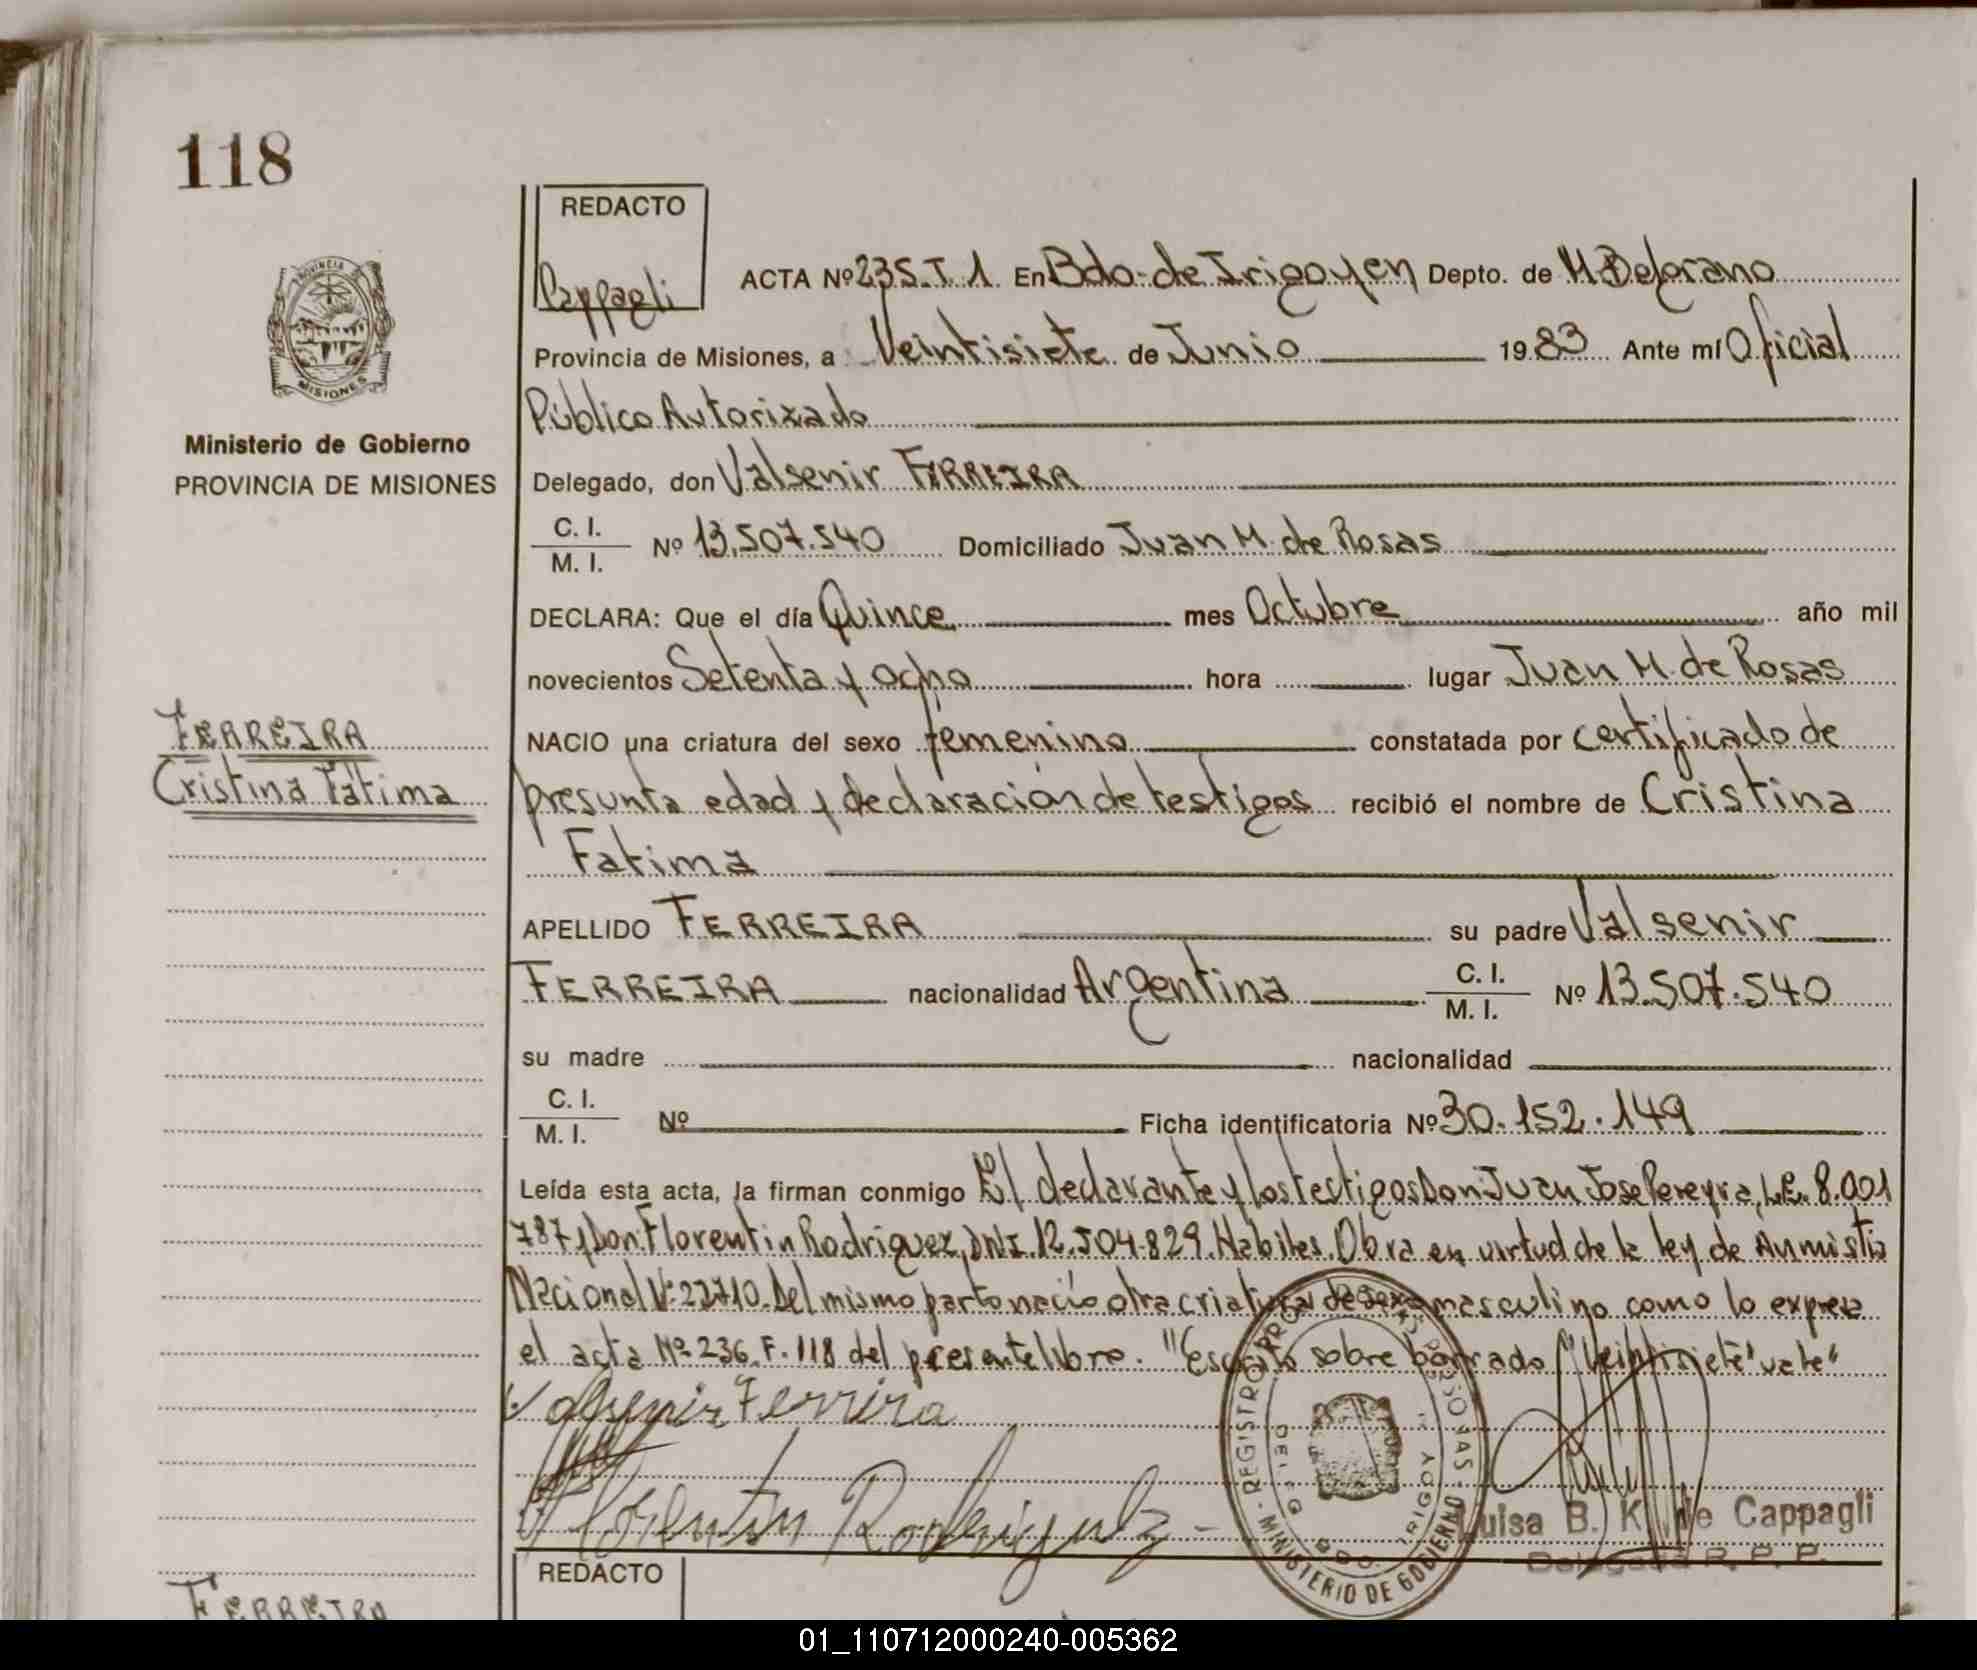 118
REDACTO
Cappagli
ACTA Nº 235. T. 1 En Bdo. de Irigoyen Depto. de M. Belgrano
PROVINCIA DE
MISIONES
Provincia de Misiones, a Veintisiete de Junio 1983 Ante mí Oficial
Público Autorizado
Ministerio de Gobierno
PROVINCIA DE MISIONES
Delegado, don Valsenir FERREIRA
C. I.
M. I. Nº 13.507.540 Domiciliado Juan M. de Rosas
DECLARA: Que el día Quince mes Octubre año mil
novecientos Setenta y ocho hora lugar Juan M. de Rosas
FERREIRA
Cristina Fátima
NACIO una criatura del sexo femenino constatada por certificado de
presunta edad y declaración de testigos recibió el nombre de Cristina
Fatima
APELLIDO FERREIRA su padre Valsenir
FERREIRA nacionalidad Argentina C. I. M. I. Nº 13.507.540
su madre nacionalidad
C. I.
M. I. Nº Ficha identificatoria Nº 30.152.149
Leída esta acta, la firman conmigo El declarante y los testigos Don Juan Jose Pereyra, L.E. 8.001
787 y Don Florentin Rodriguez, DNI. 12.504.829. Habiles. Obra en virtud de la ley de Anmistia
Nacional Nº 22710. Del mismo parto nació otra criatura de sexo masculino como lo expresa
el acta Nº 236. F. 118 del presente libro. "Escrito sobre borrado "Veintisiete" vale"
Valsenir Ferreira
Florentin Rodriguez
REGISTRO PROV. DE LAS PERSONAS
MINISTERIO DE GOBIERNO
DELEG. BDO. IRIGOY
Luisa B. K. de Cappagli
Delegada R. P. P.
REDACTO
FERREIRA
01_110712000240-005362